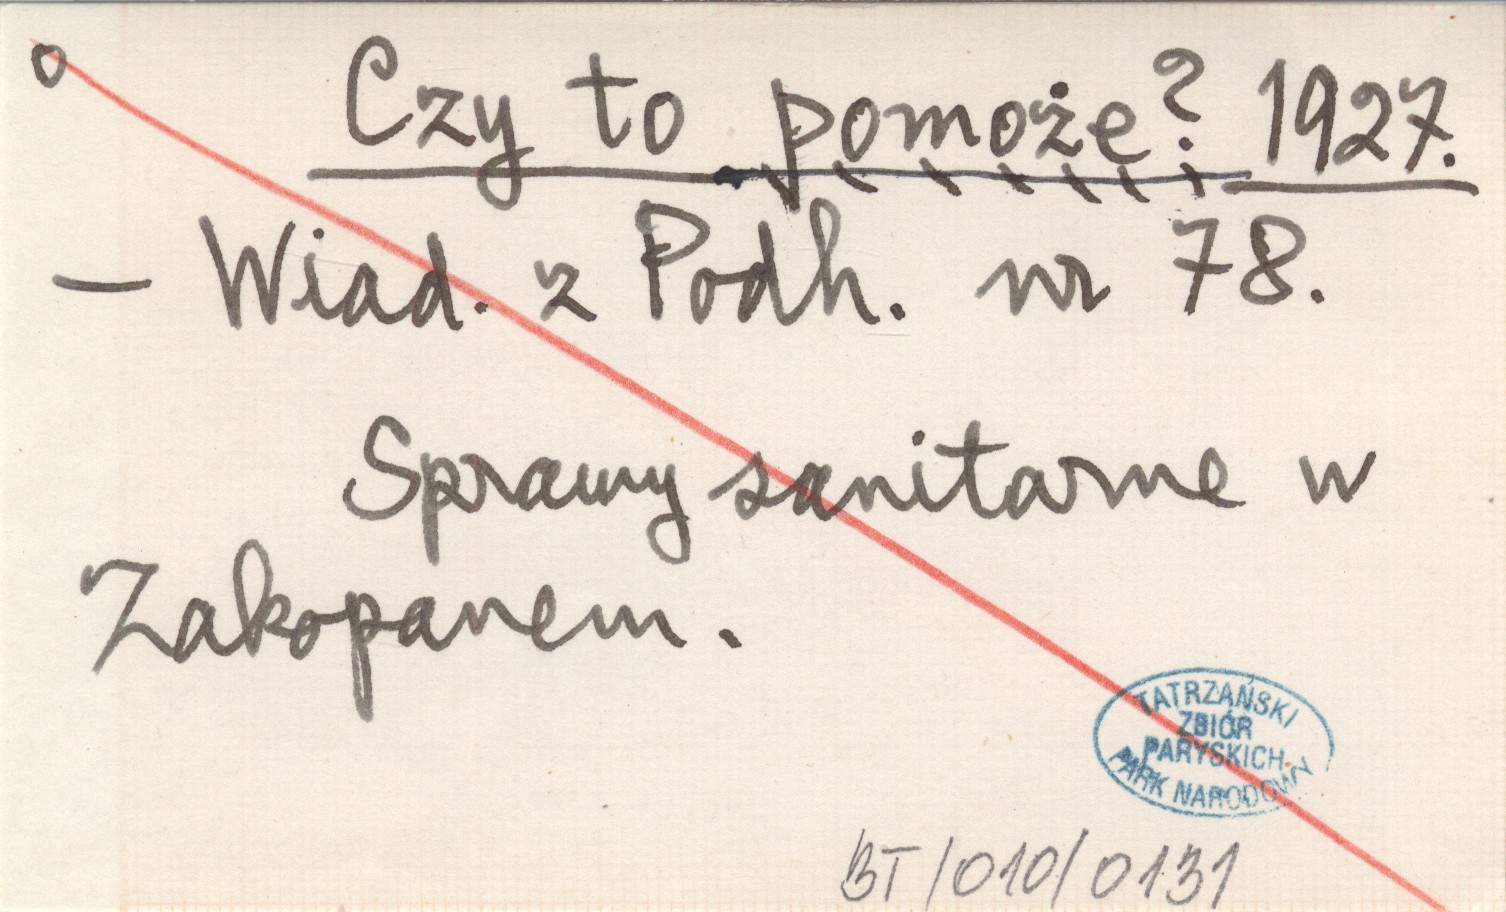 o Czy to pomoże? 1927.
— Wiad. z Podh. nr 78.
Sprawy sanitarne w
Zakopanem.
TATRZAŃSKI
ZBIÓR
PARYSKICH
PARK NARODOWY
BT/010/0131